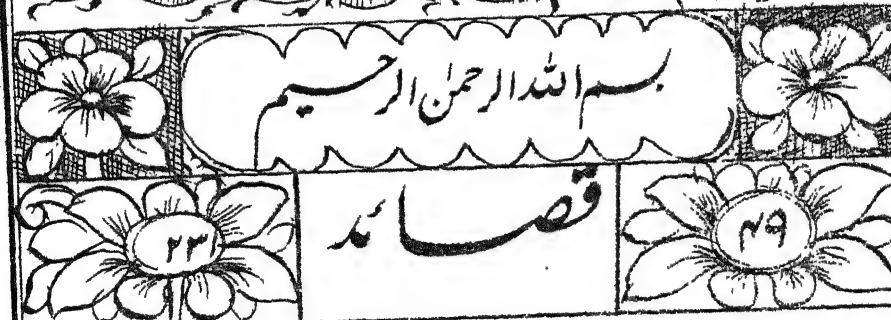 بسم الله الرحمٰن الرحیم
۴۹ قصائد ۲۳